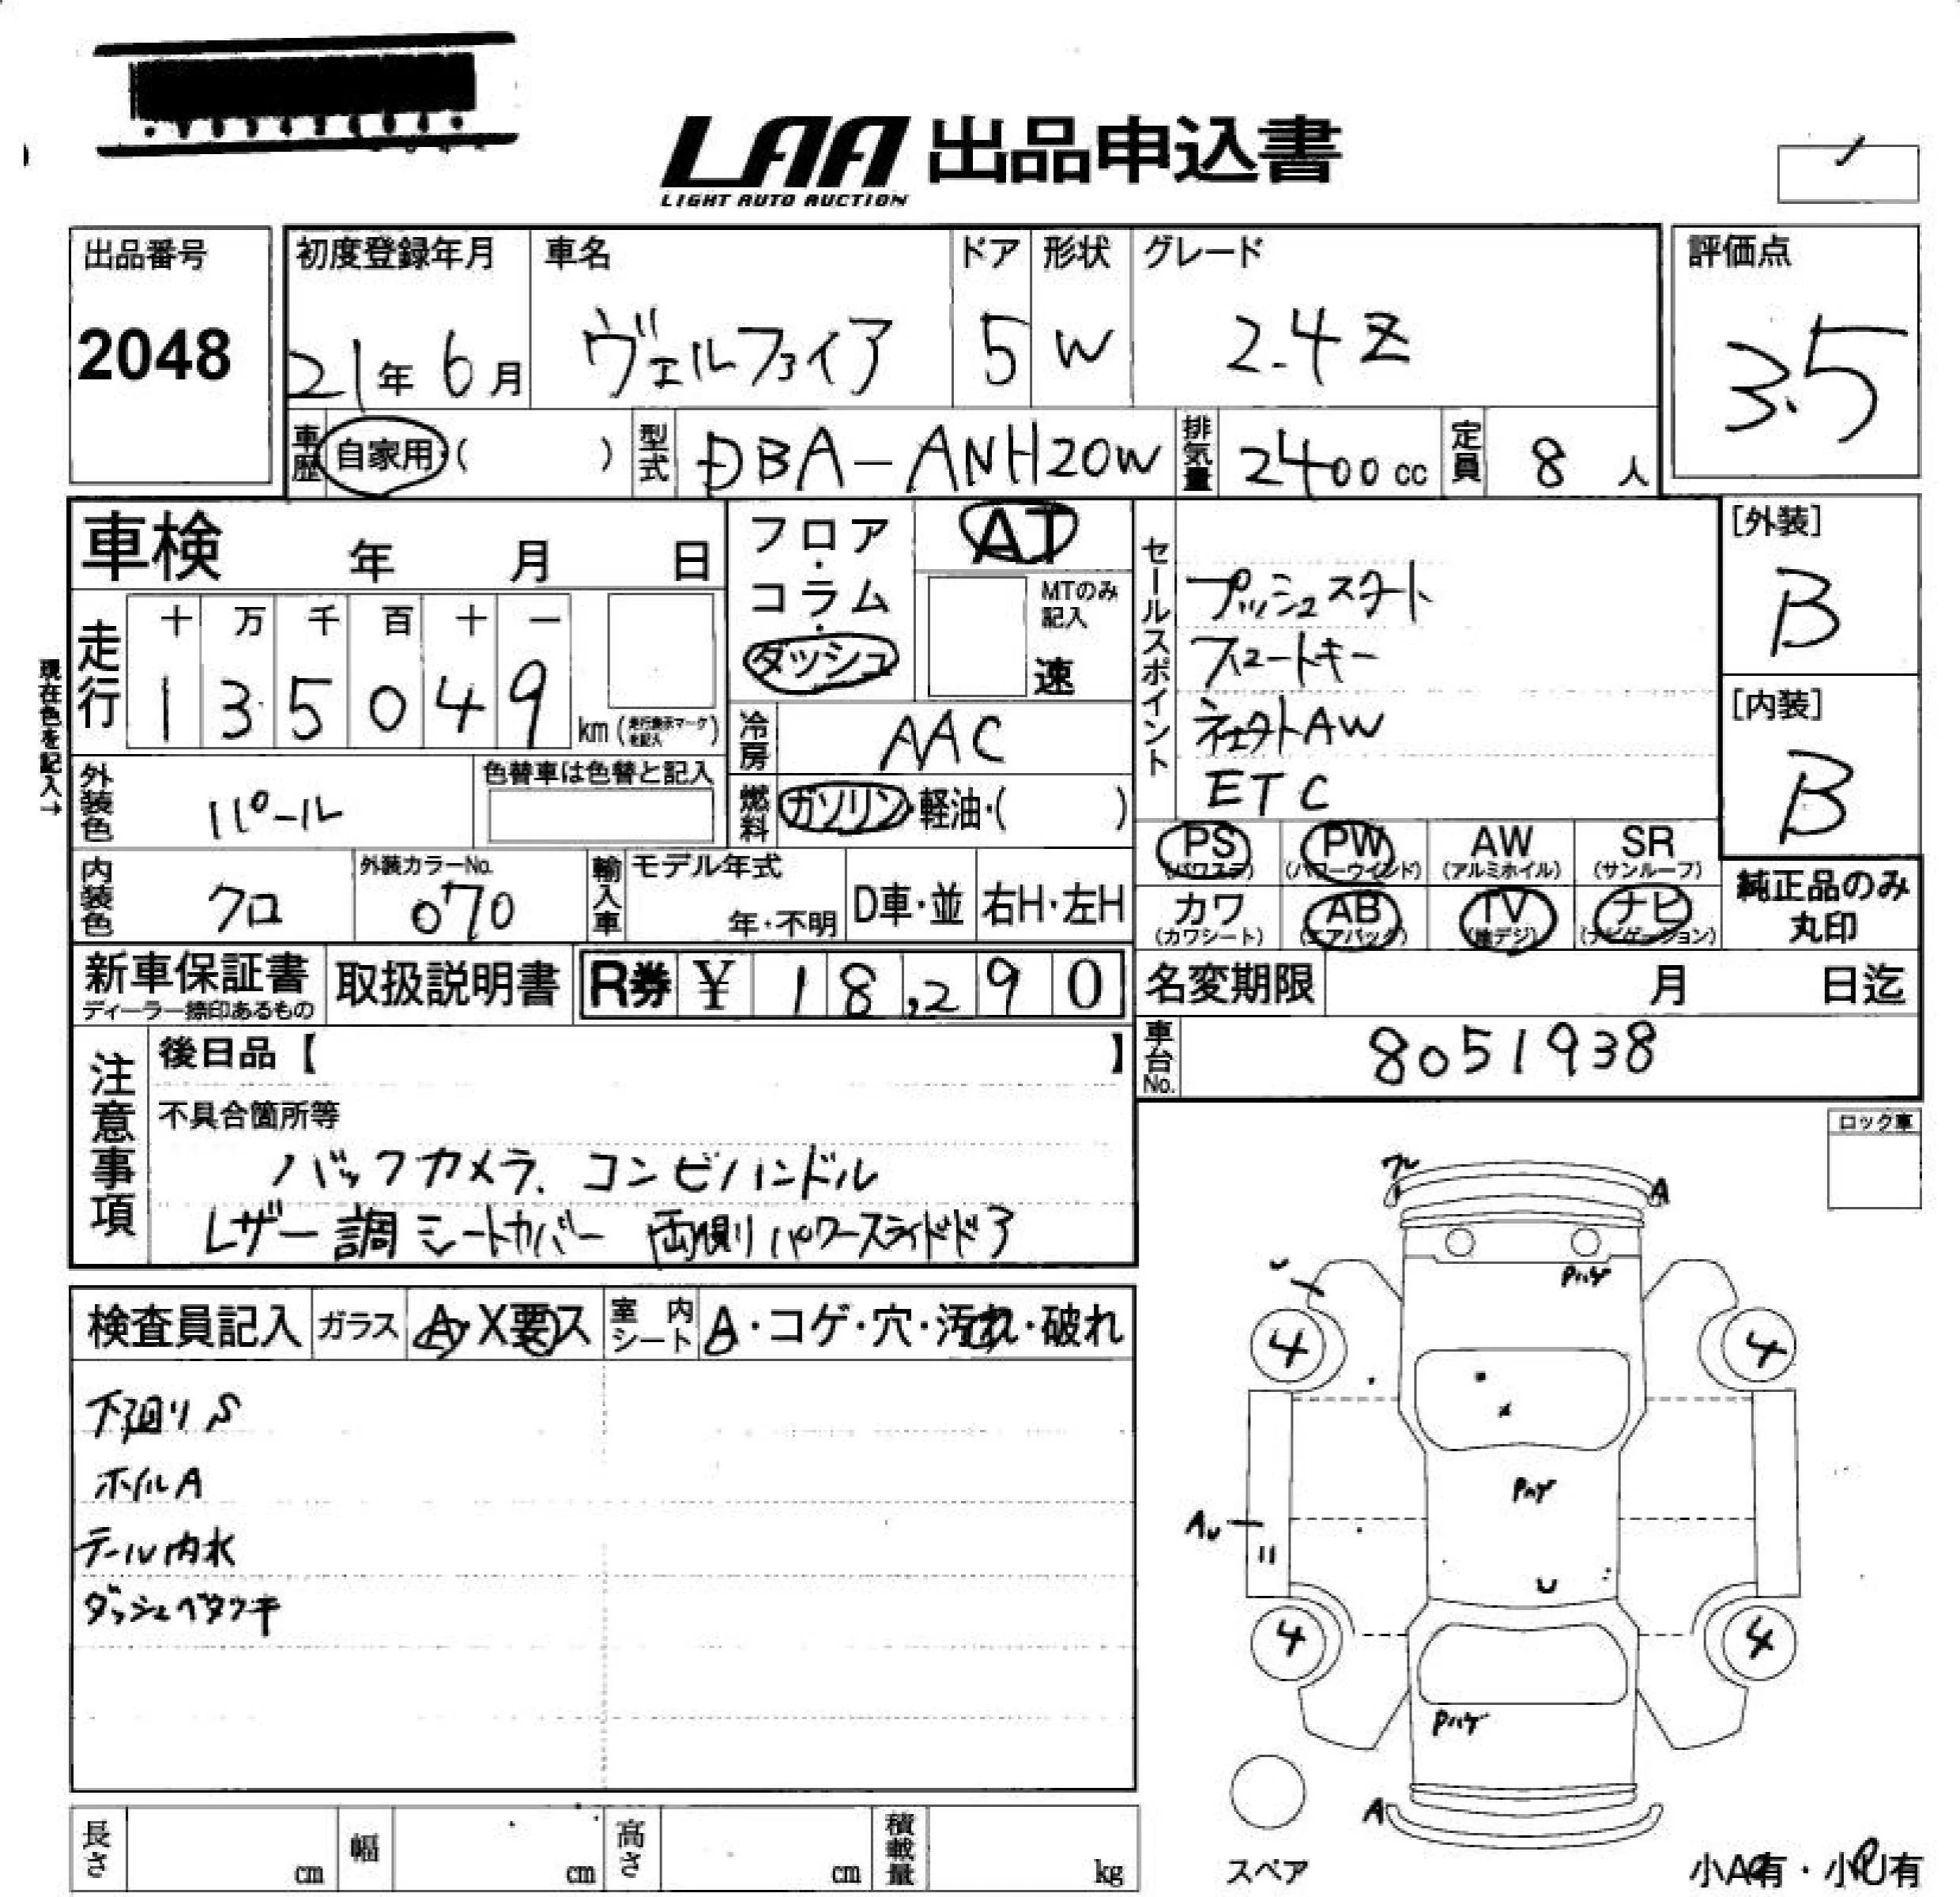 LAA 出品申込書
LIGHT AUTO AUCTION
出品番号
2048
初度登録年月
21年 6月
車名
ヴェルファイア
ドア
5
形状
W
グレード
2.4 Z
評価点
3.5
車歴
自家用・( )
型式
DBA-ANH20W
排気量
2400 cc
定員
8 人
車検 年 月 日
フロア・コラム・ダッシュ
AT
MTのみ記入
速
セールスポイント
プッシュスタート
スマートキー
社外AW
ETC
[外装]
B
[内装]
B
現在色を記入→
走行
十 万 千 百 十 一
1 3 5 0 4 9
km (走行表示マークを記入)
冷房
AAC
外装色
パール
色替車は色替と記入
燃料
ガソリン・軽油・( )
PS (パワステ)
PW (パワーウインド)
AW (アルミホイル)
SR (サンルーフ)
カワ (カワシート)
AB (エアバッグ)
TV (地デジ)
ナビ (ナビゲーション)
純正品のみ丸印
内装色
クロ
外装カラーNo.
070
輸入車
モデル年式
年・不明
D車・並
右H・左H
新車保証書
ディーラー捺印あるもの
取扱説明書
R券 ¥ 18,290
名変期限 月 日迄
車台No.
8051938
注意事項
後日品【 】
不具合箇所等
バックカメラ、コンビハンドル
レザー調シートカバー 両側パワースライドドア
ロック車
検査員記入
ガラス
A・X要ス
室内シート
A・コゲ・穴・汚れ・破れ
下廻りS
ホイルA
テール内水
ダッシュベタツキ
A
U
Pハゲ
4
4
X
Pハゲ
AU
U
4
4
Pハゲ
A
スペア
小A有・小U有
長さ cm
幅 cm
高さ cm
積載量 kg